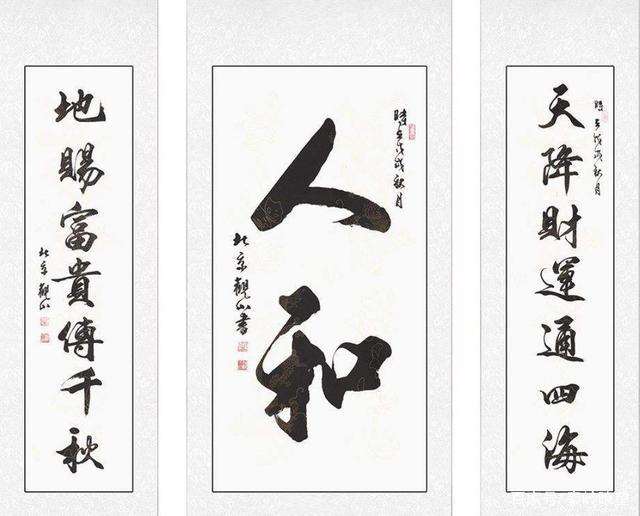 時在戊戌秋月
天降財運通四海
時在戊戌秋月
人和
北京觀山書
地賜富貴傳千秋
北京觀山